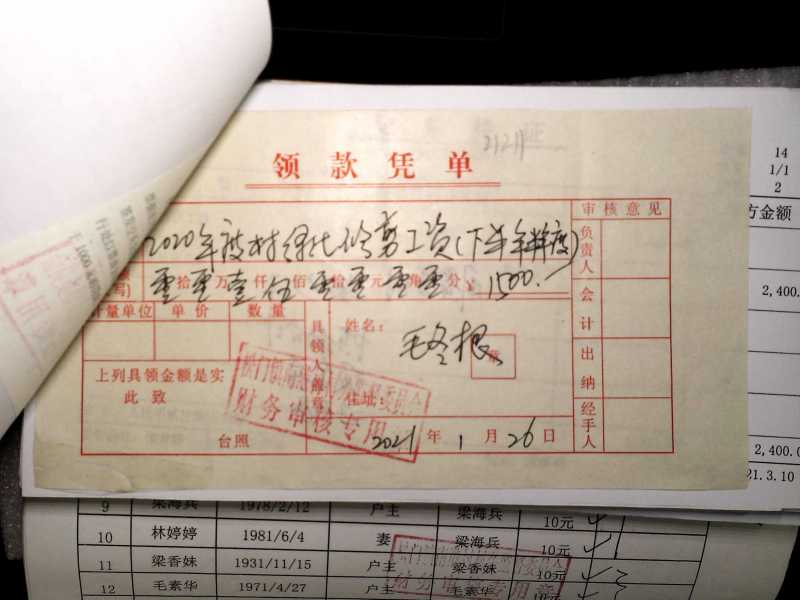 21211
领款凭单
审核意见
2020年度村绿化修剪工资(下半年度)
零拾零万壹仟伍佰零拾零元零角零分 ¥1500.-
负责人
会计
出纳
经手人
计量单位 单价 数量
具领人
姓名: 毛冬根
住址:
上列具领金额是实
此致
台照
2021年1月26日
财务审核专用章
14
1/1
2
方金额
2,400.
2,400.0
21.3.10
9 梁海兵 1978/2/12 户主 梁海兵 10元
10 林婷婷 1981/6/4 妻 梁海兵 10元
11 梁香妹 1931/11/15 户主 梁香妹 10元
12 毛素华 1971/4/27 户主 毛素华 10元
财务审核专用章